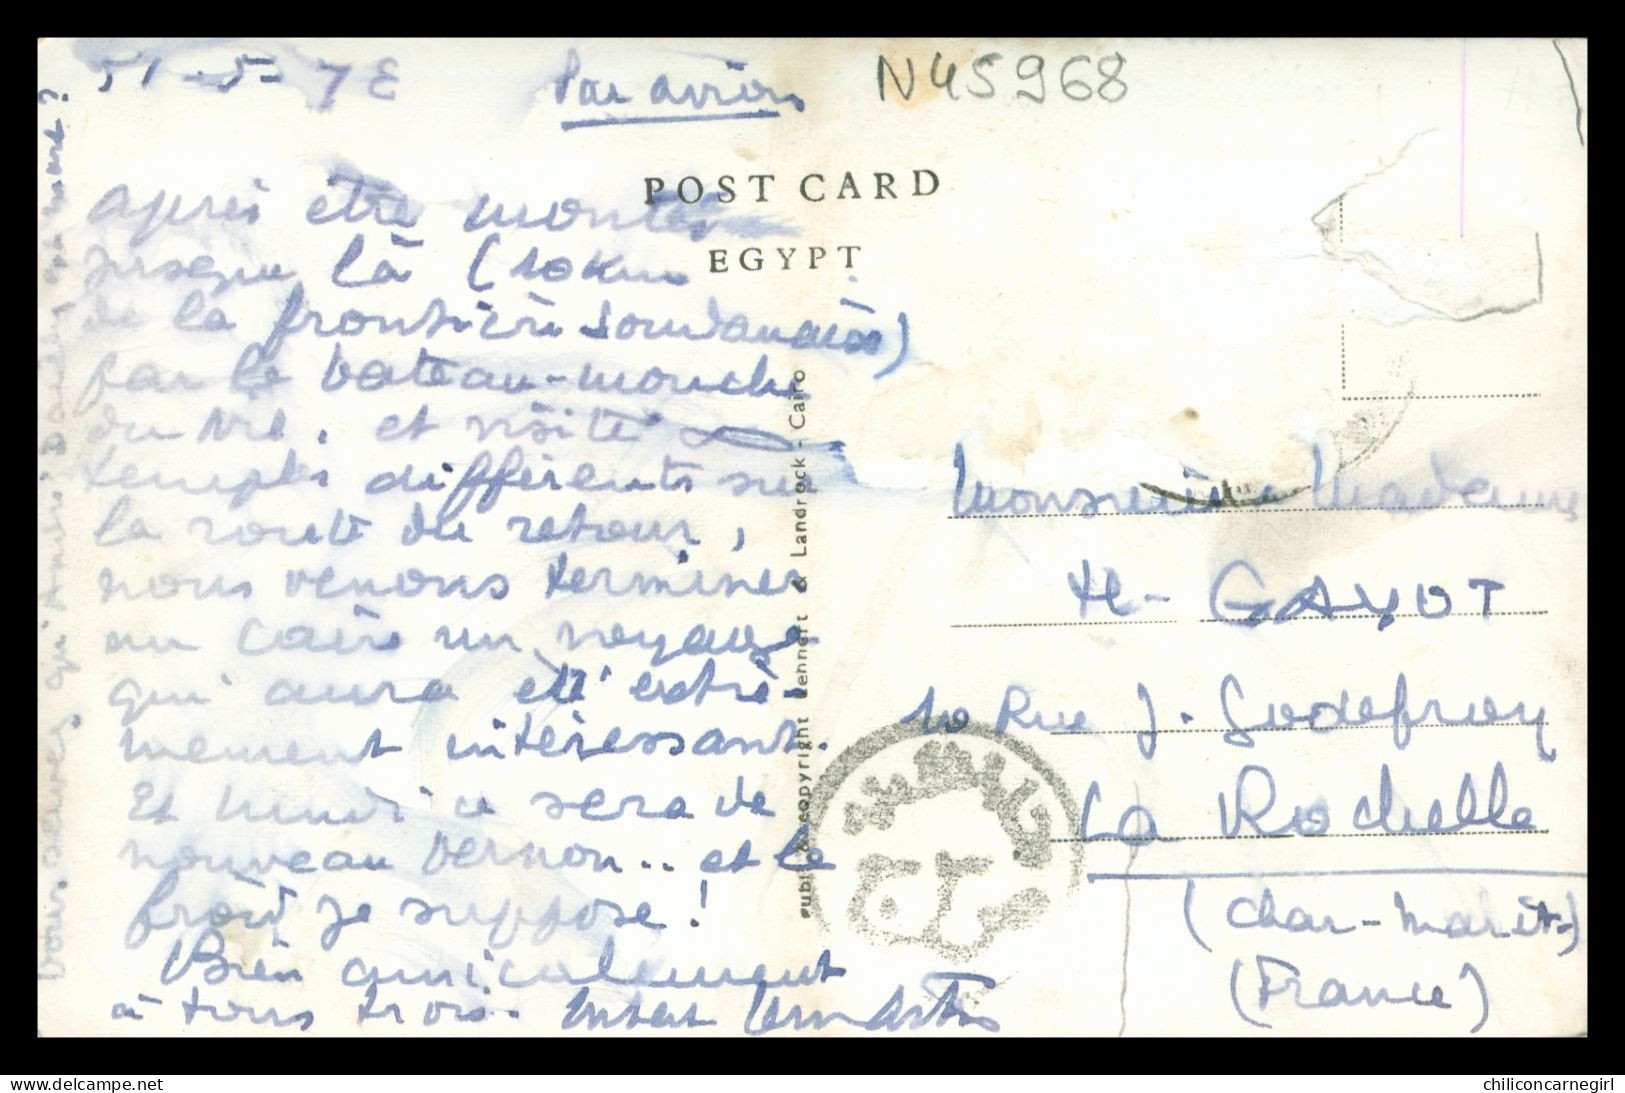 Par avion
N45968
POST CARD
EGYPT
après être montés
jusque là (10 km
de la frontière soudanaise)
par le bateau-mouche
du Nil. et visité
temples différents sur
la route du retour,
nous venons terminer
au Caire un voyage
qui aura été extrê-
mement intéressant.
Et lundi ce sera de
nouveau Vernon.. et le
froid je suppose!
Bien amicalement
à tous trois.
Publ. & copyright Lehnert & Landrock - Cairo
Monsieur Madame
H- GAYOT
10 Rue J. Godefroy
La Rochelle
(Char-Marit-)
(France)
Vous savez qu'André
est mort?
delcampe.net
chiliconcarnegirl